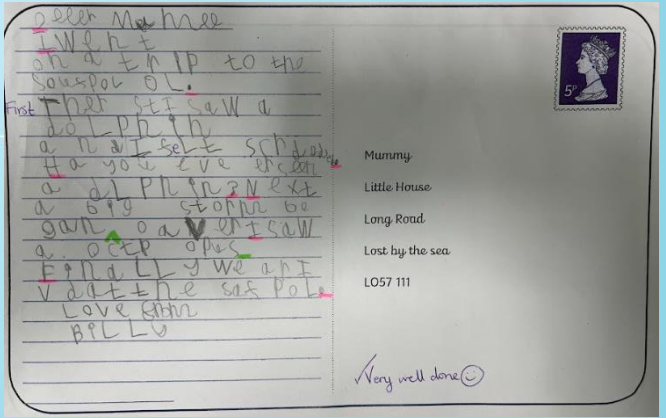 Deer Mumee
I WENt
on a trip to the
Souspol OL.
First Ther StI SaW a
doLPhin
a nd I felt
Ha you eve erseen
a dLPhin? Next
a big storm be
gan
a octp opus
FinaLLy we arI
v d at the saf POL.
Love from
BiLLy
5P
Mummy
Little House
Long Road
Lost by the sea
LO57 111
Very well done